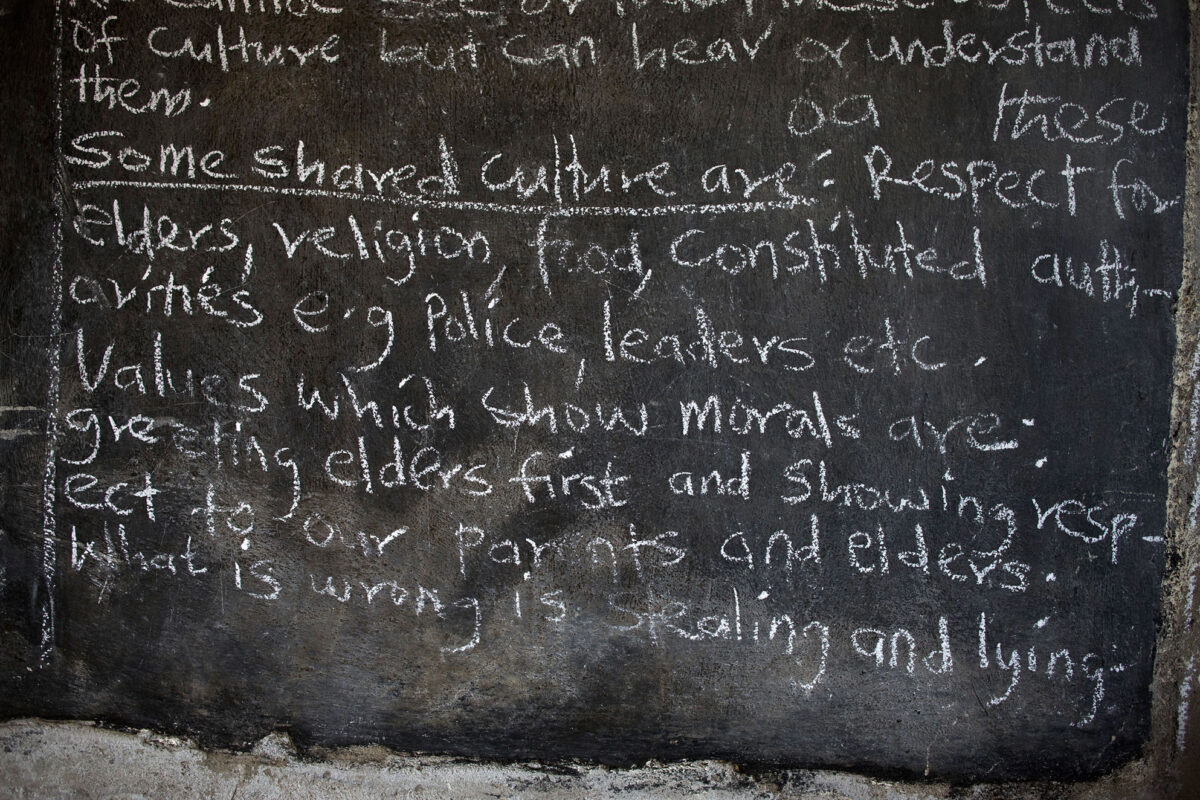 cannot see or touch these objects
of culture but can hear or understand
them.
oa these
Some shared culture are: Respect for
elders, religion, food, Constituted auth-
orities e.g Police, leaders etc.
Values which show morals are:
greeting elders first and showing resp-
ect to our parents and elders.
What is wrong is stealing and lying.